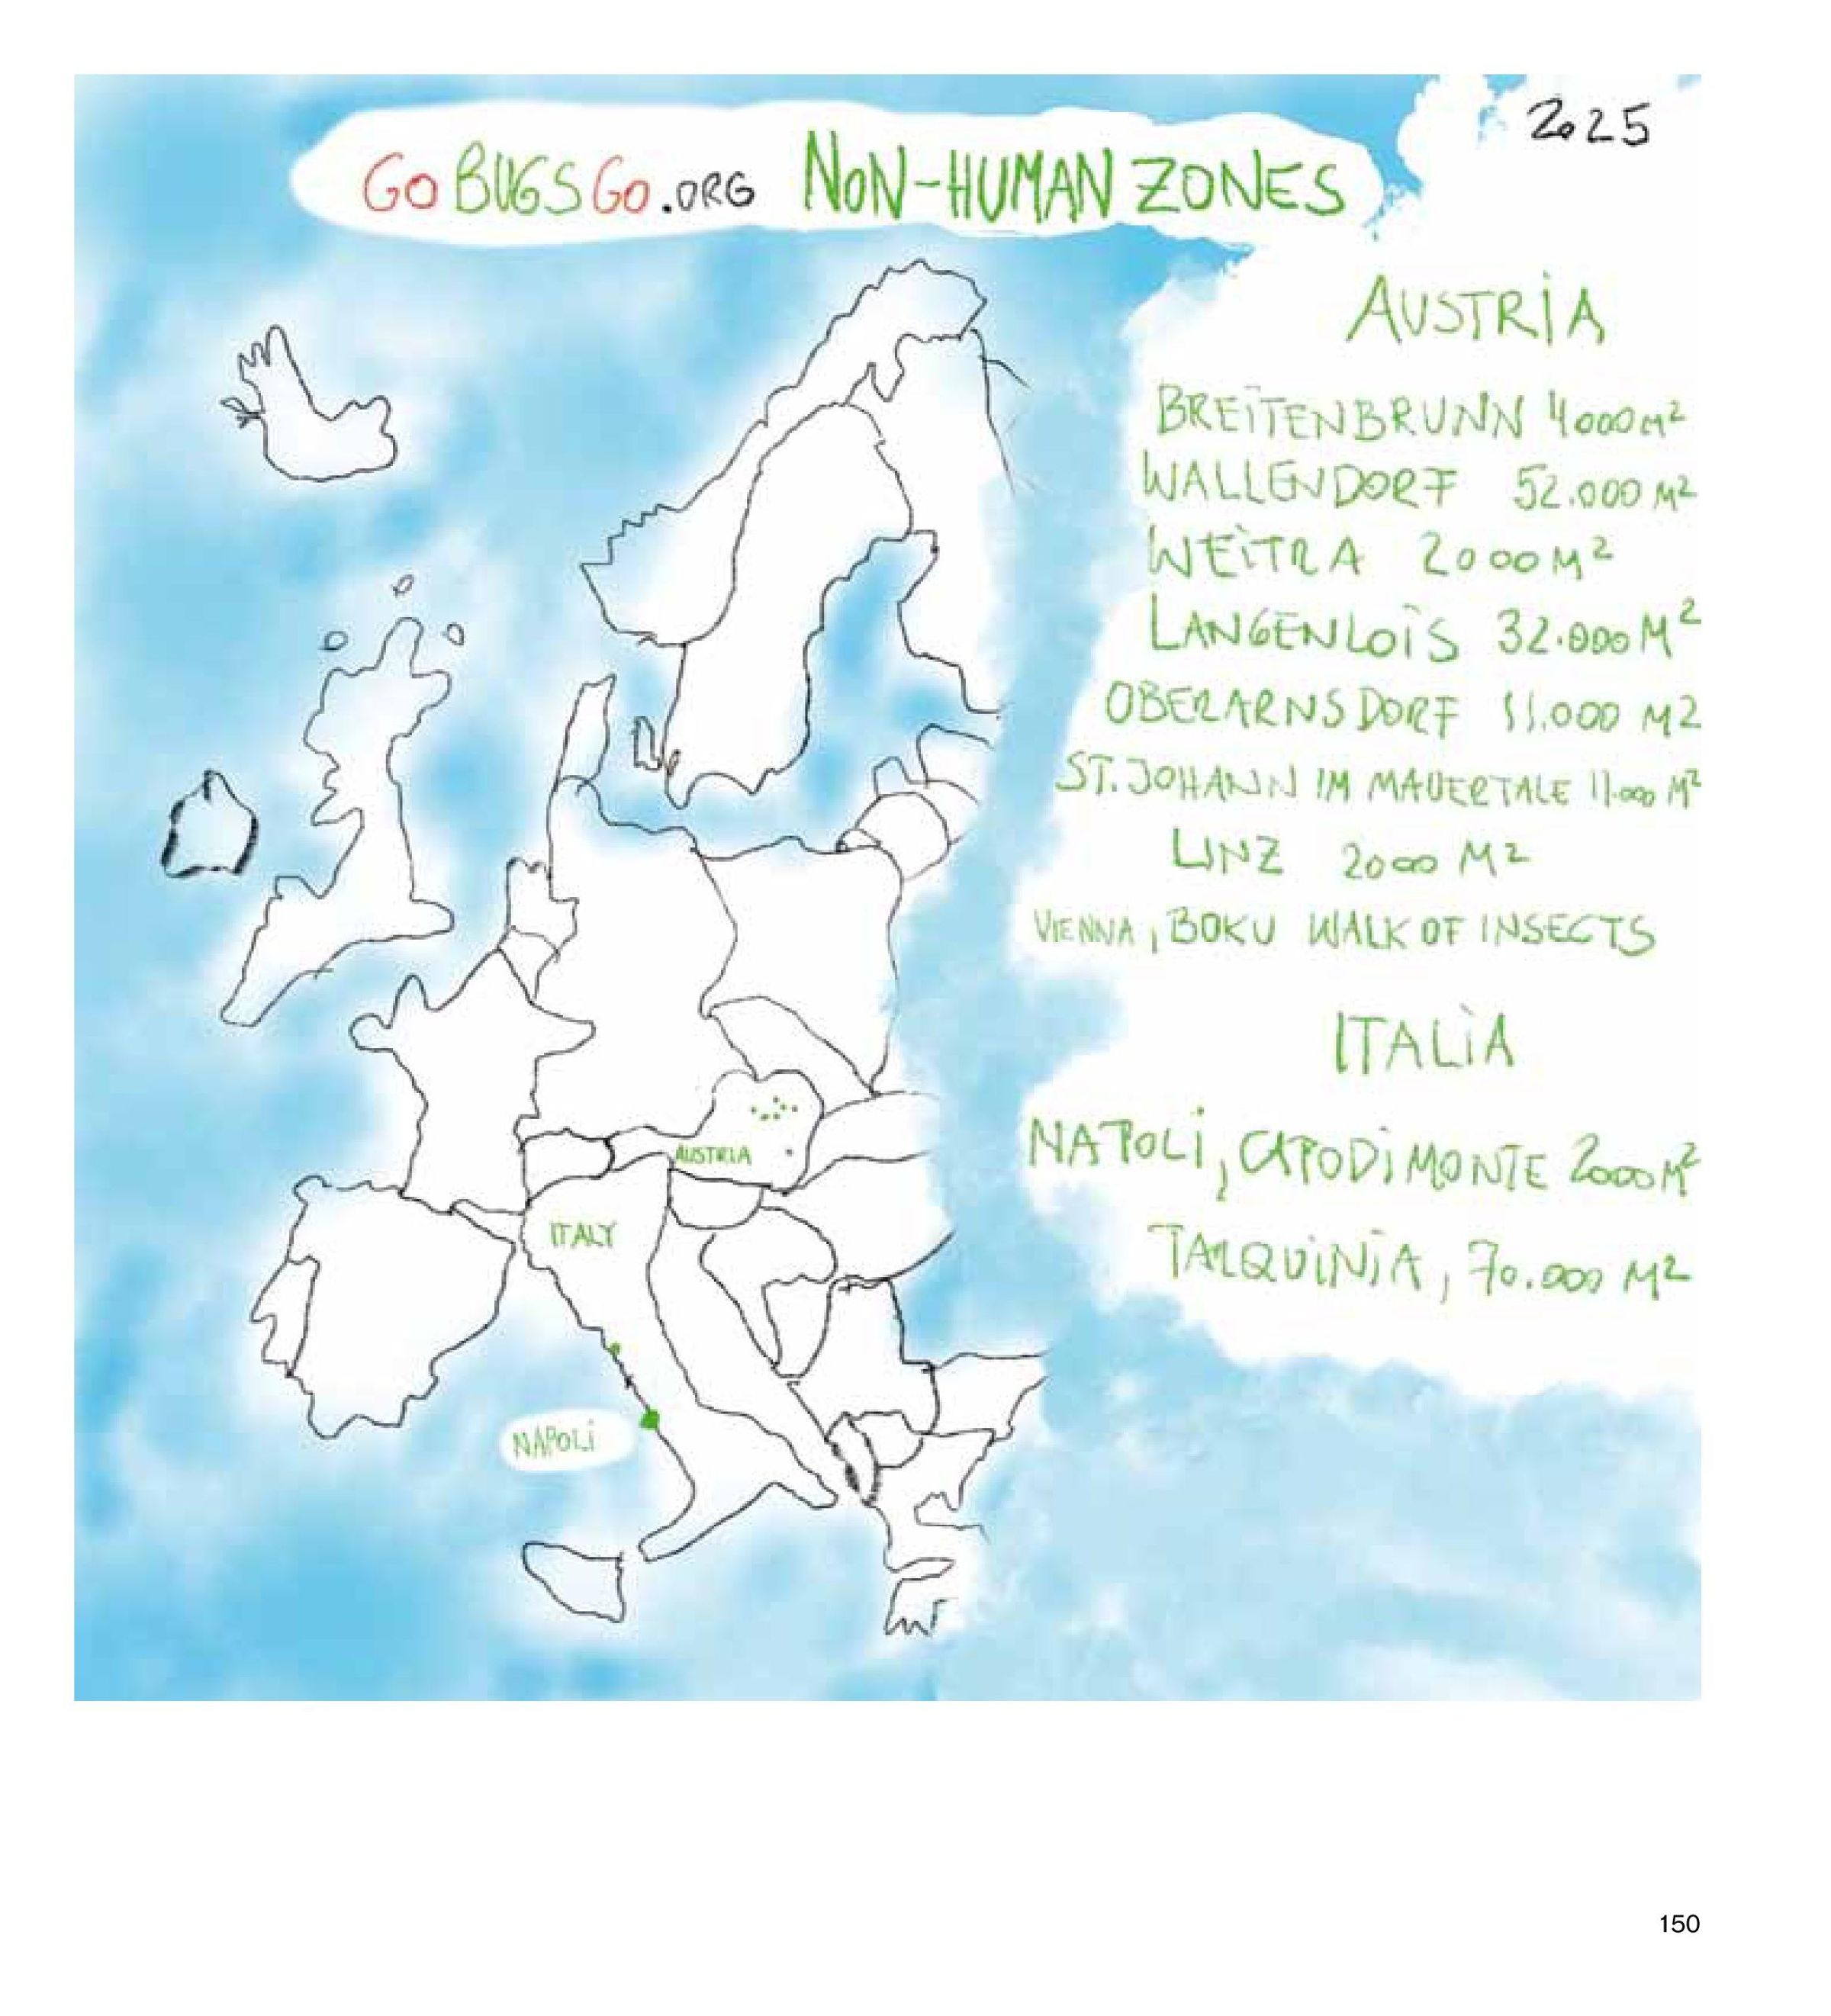 2025
GO BUGS GO.ORG NON-HUMAN ZONES
AUSTRIA
BREITENBRUNN 4000 M²
WALLENDORF 52.000 M²
WEITRA 2000 M²
LANGENLOIS 32.000 M²
OBERARNSDORF 11.000 M2
ST. JOHANN IM MAUERTALE 11.000 M²
LINZ 2000 M2
VIENNA, BOKU WALK OF INSECTS
ITALIA
NAPOLI, CAPODIMONTE 2000 M²
TARQUINIA, 70.000 M2
AUSTRIA
ITALY
NAPOLI
150